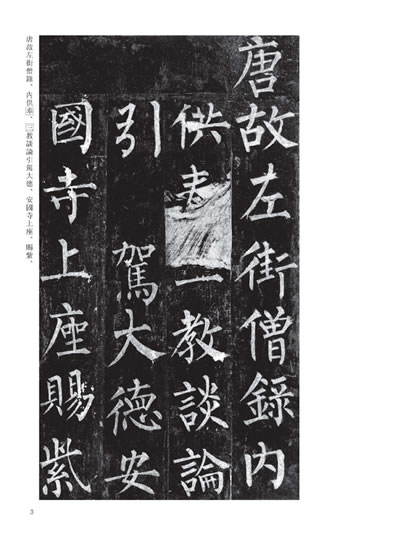 唐故左街僧錄内
供奉三教談論
引駕大德安
國寺上座賜紫
唐故左街僧錄、内供奉、三教談論引駕大德、安國寺上座、賜紫、
3